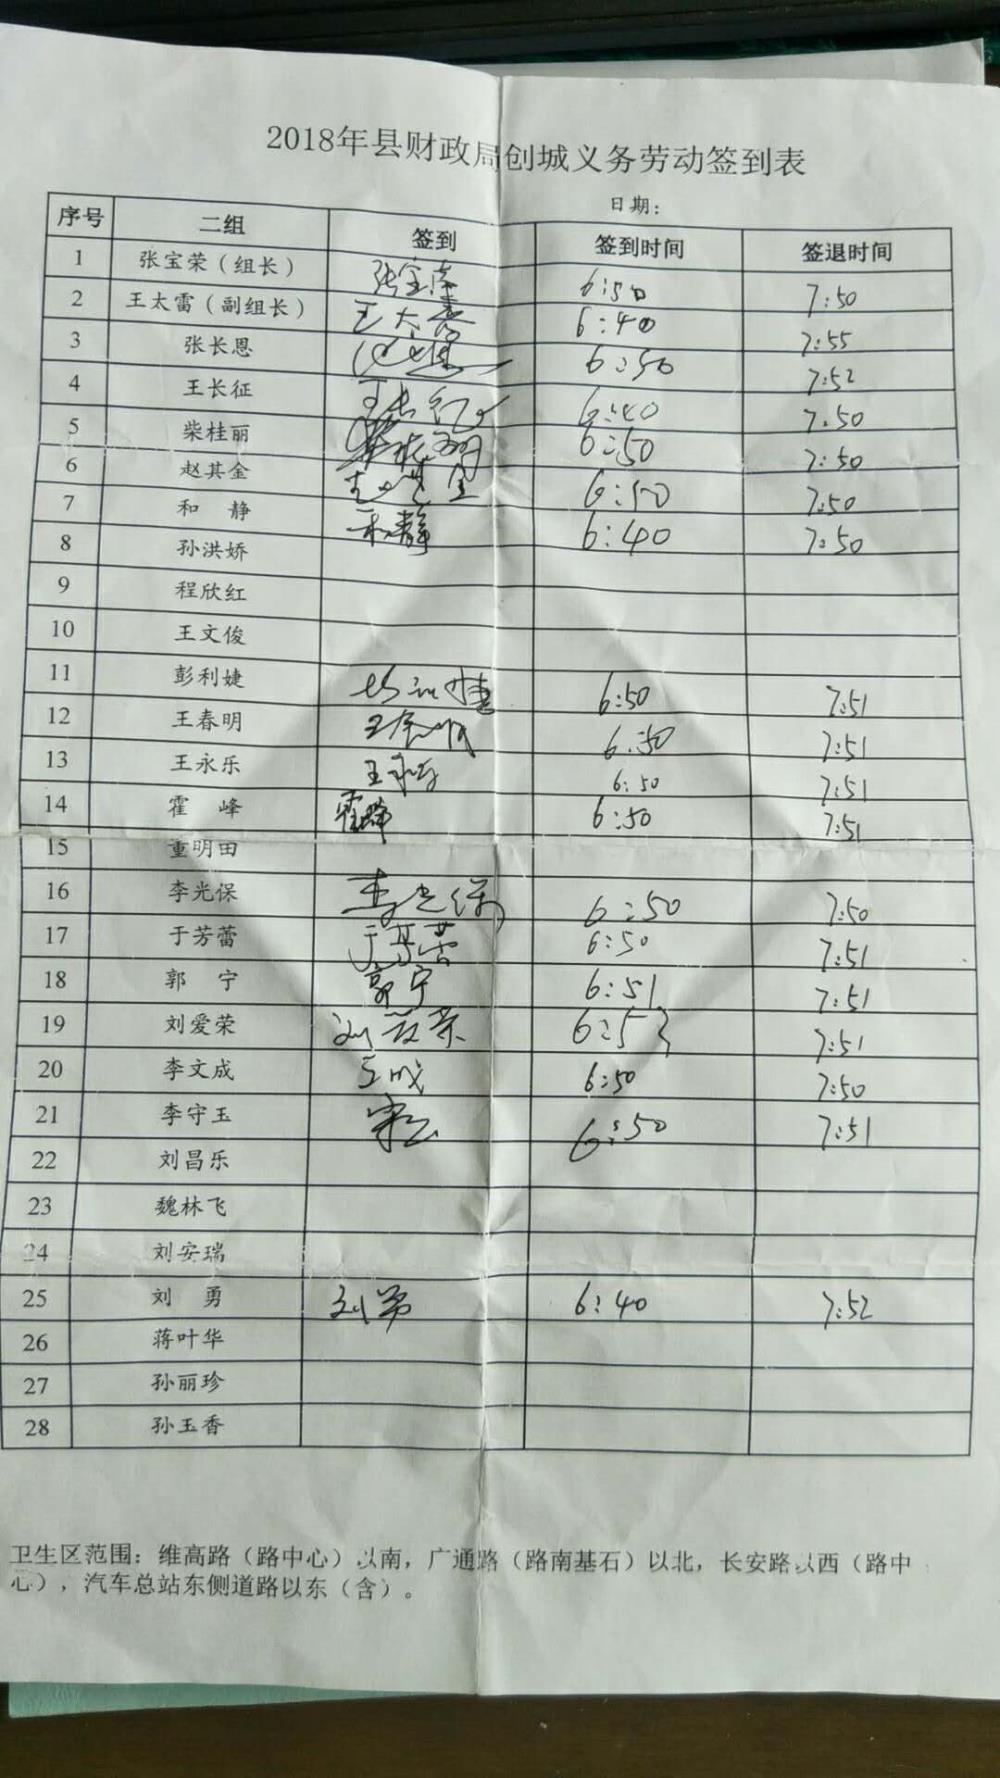 2018年县财政局创城义务劳动签到表
日期：
序号 二组 签到 签到时间 签退时间
1 张宝荣（组长） 张宝荣 6:50 7:50
2 王太雷（副组长） 王太雷 6:40 7:55
3 张长恩 6:50 7:52
4 王长征 王长征 6:40 7:50
5 柴桂丽 柴桂丽 6:50 7:50
6 赵其金 赵其金 6:50 7:50
7 和 静 和静 6:40 7:50
8 孙洪娇
9 程欣红
10 王文俊
11 彭利婕 6:50 7:51
12 王春明 王春明 6:50 7:51
13 王永乐 王永乐 6:50 7:51
14 霍 峰 霍峰 6:50 7:51
15 重明田
16 李光保 李光保 6:50 7:50
17 于芳蕾 于芳蕾 6:50 7:51
18 郭 宁 郭宁 6:51 7:51
19 刘爱荣 刘爱荣 6:53 7:51
20 李文成 6:50 7:50
21 李守玉 6:50 7:51
22 刘昌乐
23 魏林飞
24 刘安瑞
25 刘 勇 刘勇 6:40 7:52
26 蒋叶华
27 孙丽珍
28 孙玉香
卫生区范围：维高路（路中心）以南，广通路（路南基石）以北，长安路以西（路中
心），汽车总站东侧道路以东（含）。